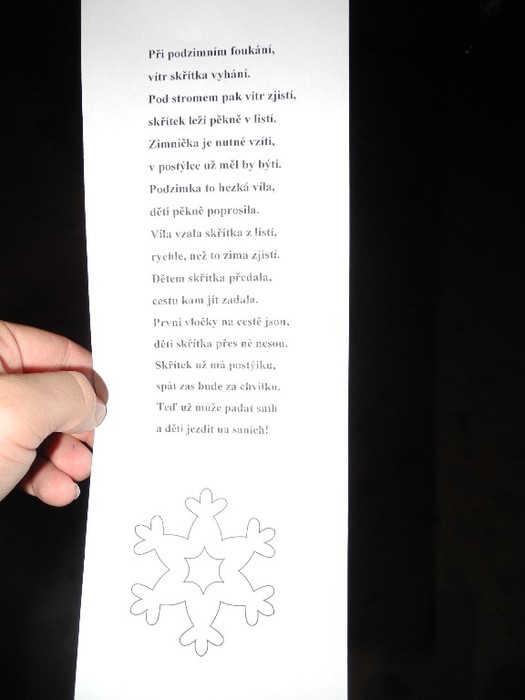 Při podzimním foukání,
vítr skřítka vyhání.
Pod stromem pak vítr zjistí,
skřítek leží pěkně v listí.
Zimníčka je nutné vzíti,
v postýlce už měl by býti.
Podzimka to hezká víla,
děti pěkně poprosila.
Víla vzala skřítka z listí,
rychle, než to zima zjistí.
Dětem skřítka předala,
cestu kam jít zadala.
První vločky na cestě jsou,
děti skřítka přes ně nesou.
Skřítek už má postýlku,
spát zas bude za chvilku.
Teď už může padat sníh
a děti jezdit na saních!